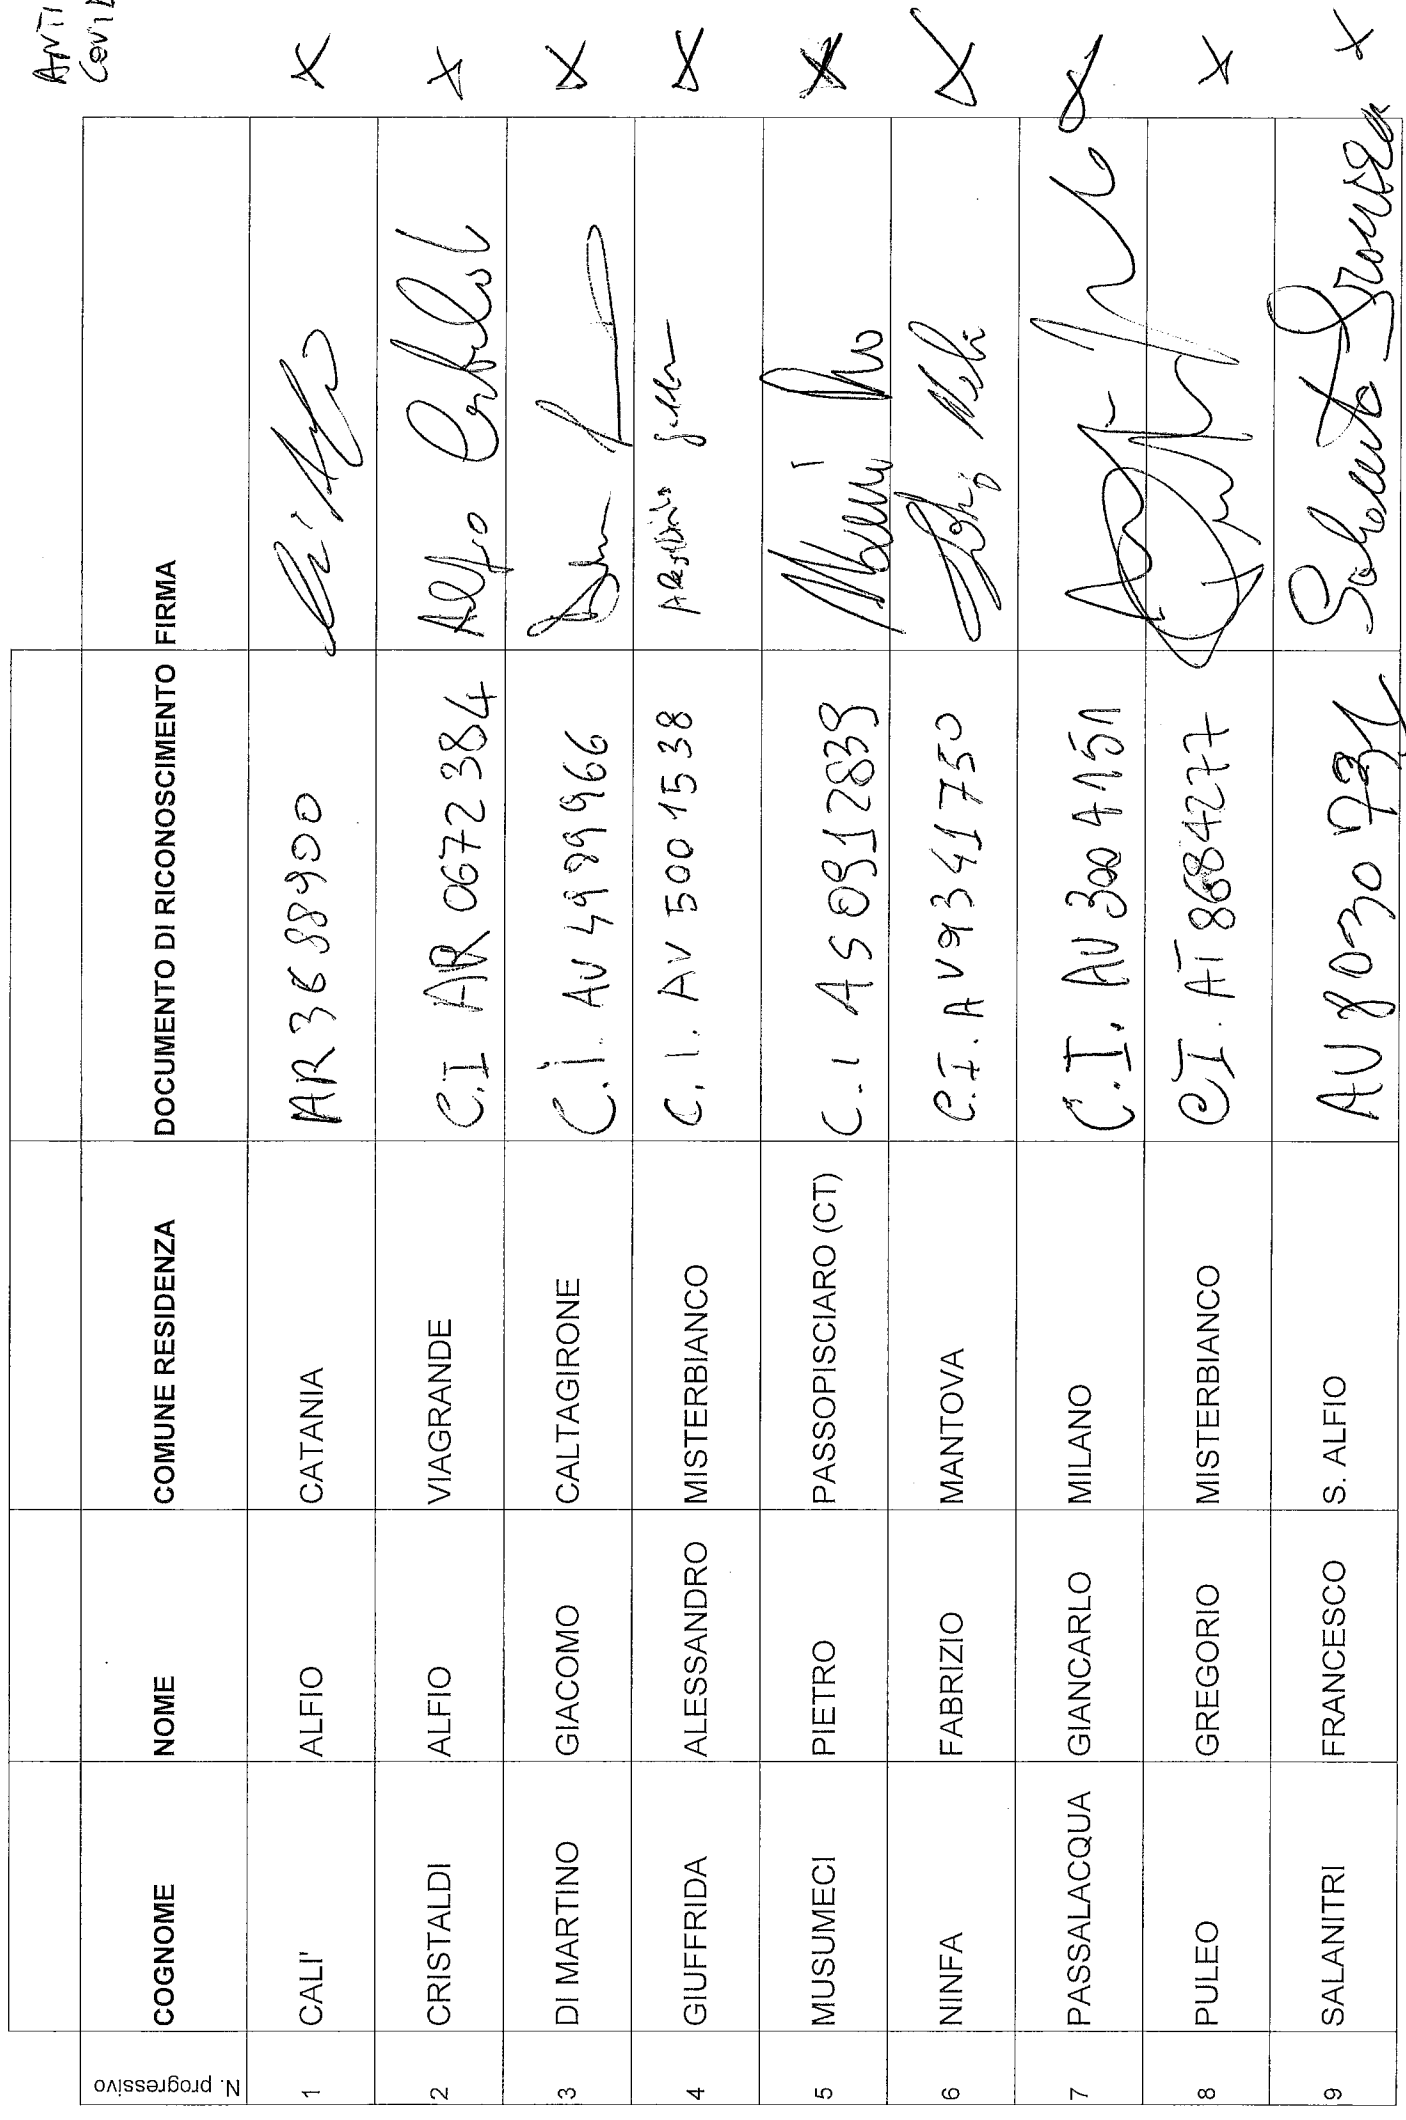 ANTI
COVID
N. progressivo COGNOME NOME COMUNE RESIDENZA DOCUMENTO DI RICONOSCIMENTO FIRMA
1 CALI' ALFIO CATANIA AR3688900 X
2 CRISTALDI ALFIO VIAGRANDE C.I AR 0672384 Alfio Cristaldi X
3 DI MARTINO GIACOMO CALTAGIRONE C.i. AV 4999966 X
4 GIUFFRIDA ALESSANDRO MISTERBIANCO C.I. AV 5001538 X
5 MUSUMECI PIETRO PASSOPISCIARO (CT) C.I AS 0912839 X
6 NINFA FABRIZIO MANTOVA C.I. AV9341750 X
7 PASSALACQUA GIANCARLO MILANO C.I. AV 3004151 X
8 PULEO GREGORIO MISTERBIANCO CI. AT 8684277 X
9 SALANITRI FRANCESCO S. ALFIO AV 8030 Salanitri Francesco X